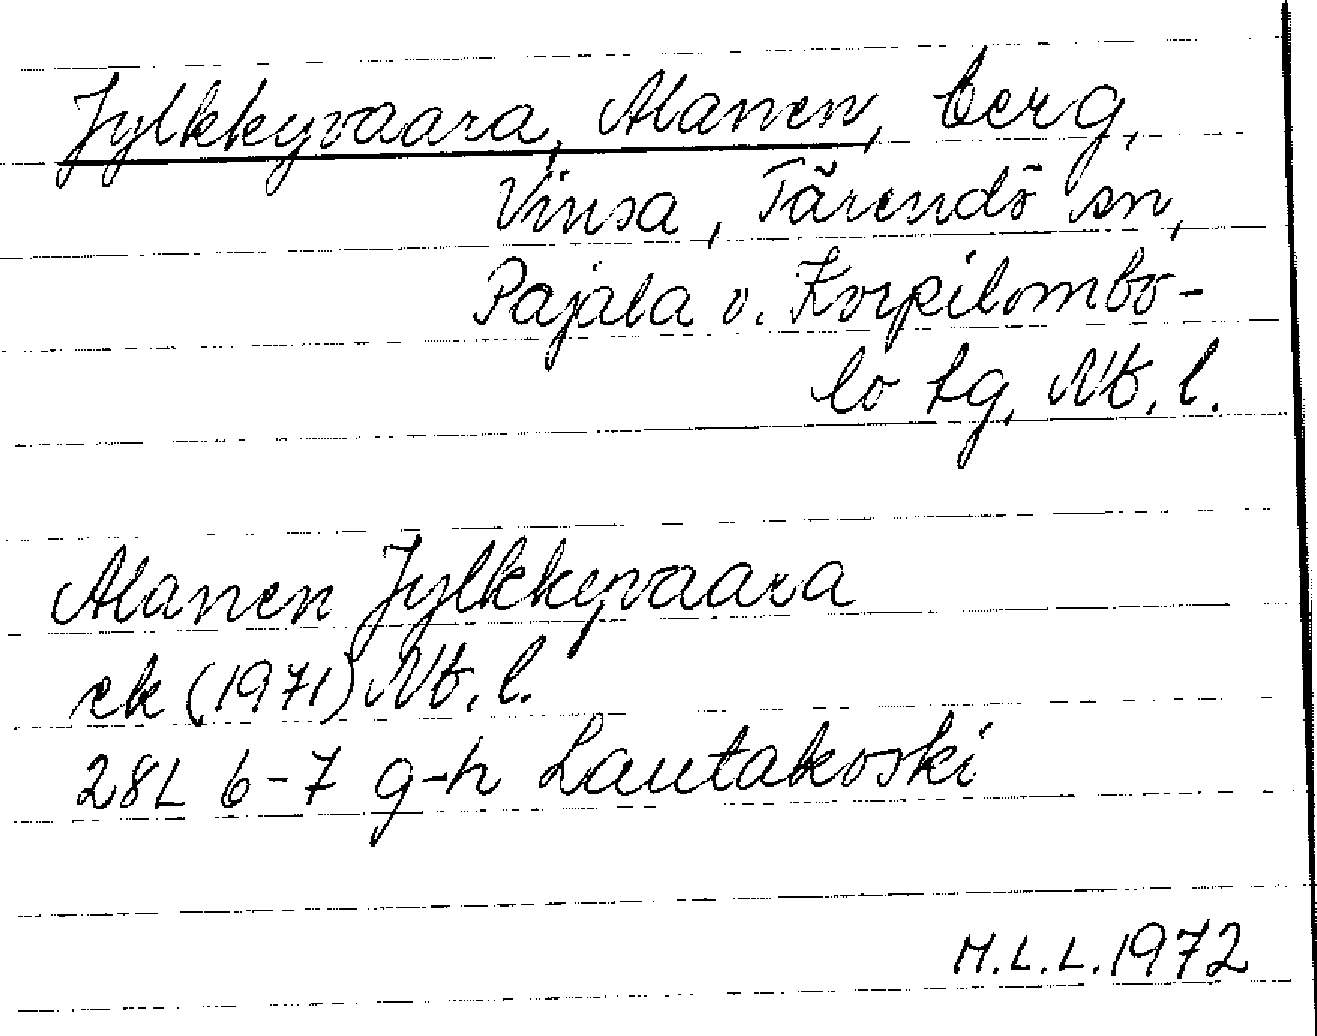 Jylkkyvaara, Alanen, berg,
Vinsa, Tärendö sn,
Pajala o. Korpilombo-
lo tg, Nb. l.
Alanen Jylkkyvaara
ek (1971) Nb. l.
28L 6-7 g-h Lautakoski
M.L.L. 1972